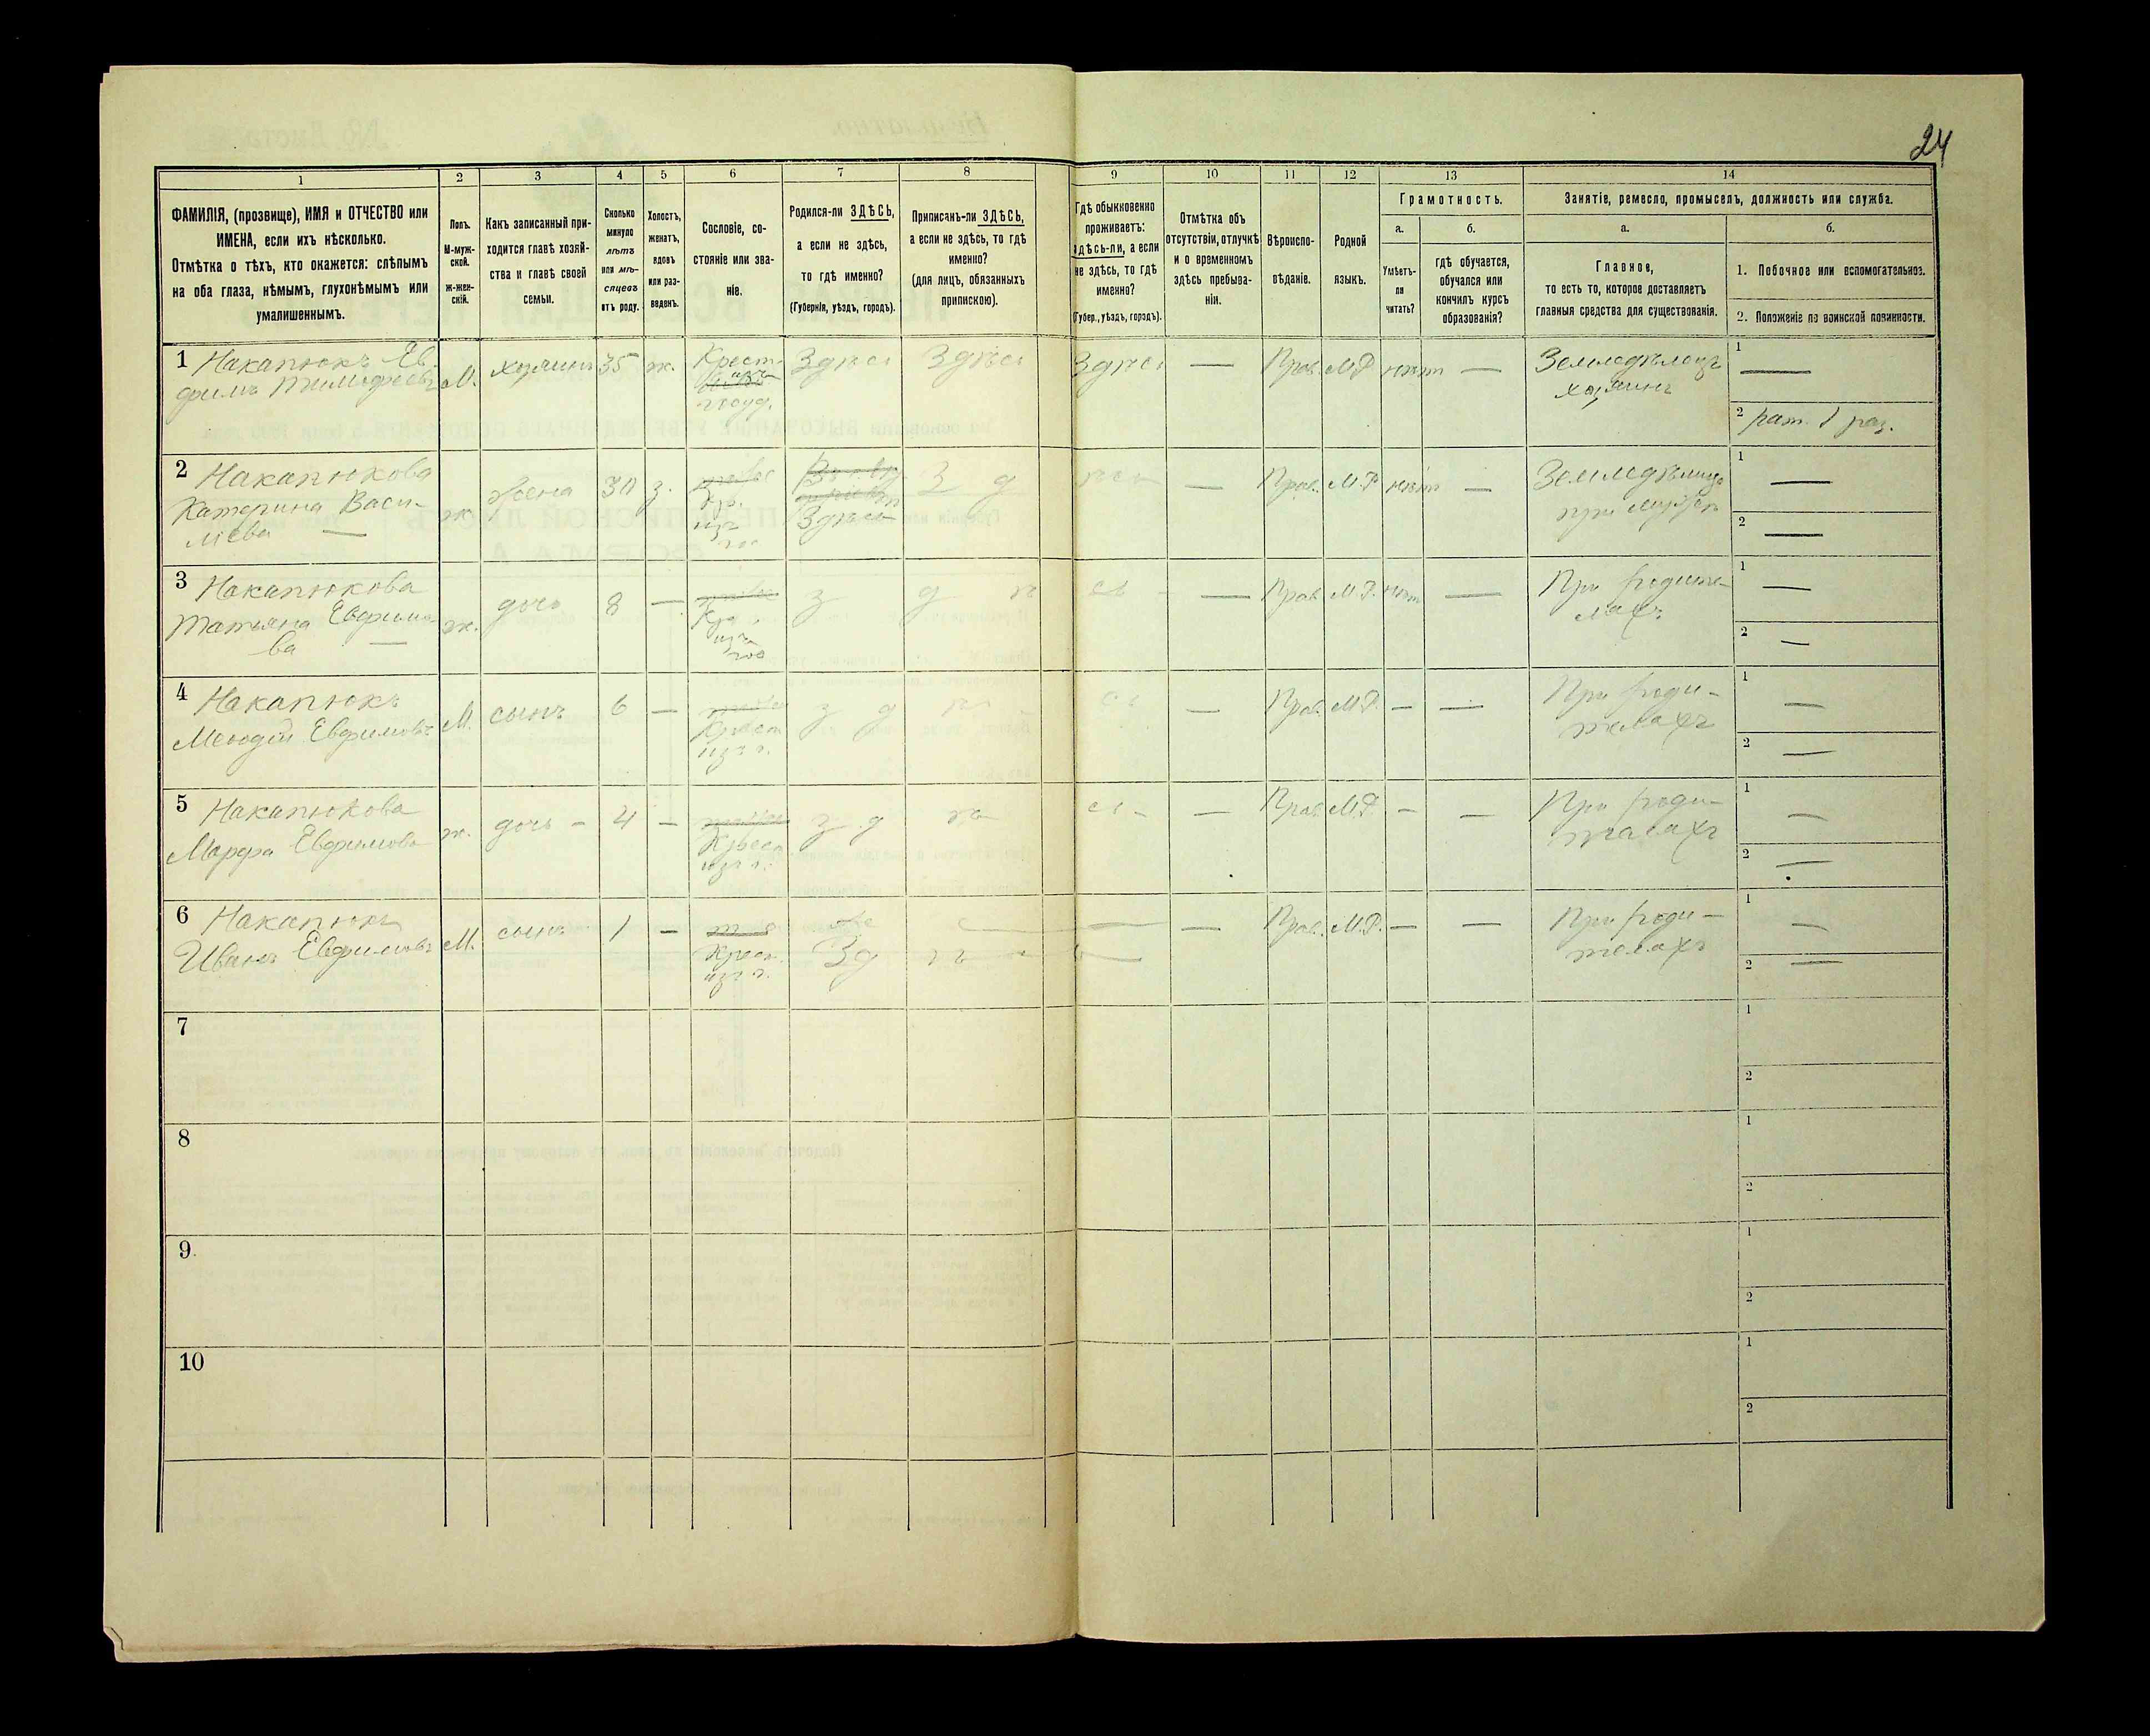 24
1
2
3
4
5
6
7
8
9
10
11
12
13
14
ФАМИЛІЯ, (прозвище), ИМЯ и ОТЧЕСТВО или
ИМЕНА, если ихъ нѣсколько.
Отмѣтка о тѣхъ, кто окажется: слѣпымъ
на оба глаза, нѣмымъ, глухонѣмымъ или
умалишеннымъ.
Полъ.
М-муж-
ской.
ж-жен-
скій.
Какъ записанный при-
ходится главѣ хозяй-
ства и главѣ своей
семьи.
Сколько
минуло
лѣтъ
или мѣ-
сяцевъ
отъ роду.
Холостъ,
женатъ,
вдовъ
или раз-
веденъ.
Сословіе, со-
стояніе или зва-
ніе.
Родился-ли ЗДѢСЬ,
а если не здѣсь,
то гдѣ именно?
(Губернія, уѣздъ, городъ).
Приписанъ-ли ЗДѢСЬ,
а если не здѣсь, то гдѣ
именно?
(для лицъ, обязанныхъ
припискою).
Гдѣ обыкновенно
проживаетъ:
здѣсь-ли, а если
не здѣсь, то гдѣ
именно?
(Губер., уѣздъ, городъ).
Отмѣтка объ
отсутствіи, отлучкѣ
и о временномъ
здѣсь пребыва-
ніи.
Вѣроиспо-
вѣданіе.
Родной
языкъ.
Грамотность.
а.
б.
Умѣетъ-
ли
читать?
гдѣ обучается,
обучался или
кончилъ курсъ
образованія?
Занятіе, ремесло, промыселъ, должность или служба.
а.
б.
Главное,
то есть то, которое доставляетъ
главныя средства для существованія.
1. Побочное или вспомогательное.
2. Положеніе по воинской повинности.
1 Накапюкъ Ев-
фимъ Тимофеевъ
М.
хозяинъ
35
ж.
Крест.
изъ
госуд.
Здѣсь
Здѣсь
Здѣсь
—
Прав.
М.Р.
нѣт
—
Земледѣлецъ
хозяинъ
1 —
2 рат. 1 раз.
2 Накапюкова
Катерина Васи-
лiева —
ж
жена
30
з.
Кр.
изъ
гос
Здѣсь
З д ѣсь
—
Прав.
М.Р.
нѣт
—
Земледѣлица
при мужѣ
1 —
2 —
3 Накапюкова
Татьяна Евфимо
ва —
ж.
дочь
8
—
Кр.
изъ
гос
з д ѣ сь
—
Прав.
М.Р.
нѣт
—
При родите-
лахъ
1 —
2 —
4 Накапюкъ
Меѳодій Евфимовъ
М.
сынъ
6
—
Крест
изъ г.
з д ѣ сь
—
Прав.
М.Р.
—
—
При роди-
телахъ
1 —
2 —
5 Накапюкова
Марфа Евфимова
ж.
дочь —
4
—
Крест
изъ г.
з д ѣ сь
—
Прав.
М.Р.
—
—
При роди-
телахъ
1 —
2 —
6 Накапюкъ
Иванъ Евфимовъ
М.
сынъ
1
—
Крест.
изъ г.
Зд ѣ сь
—
Прав.
М.Р.
—
—
При роди-
телахъ
1 —
2 —
7
1
2
8
1
2
9
1
2
10
1
2